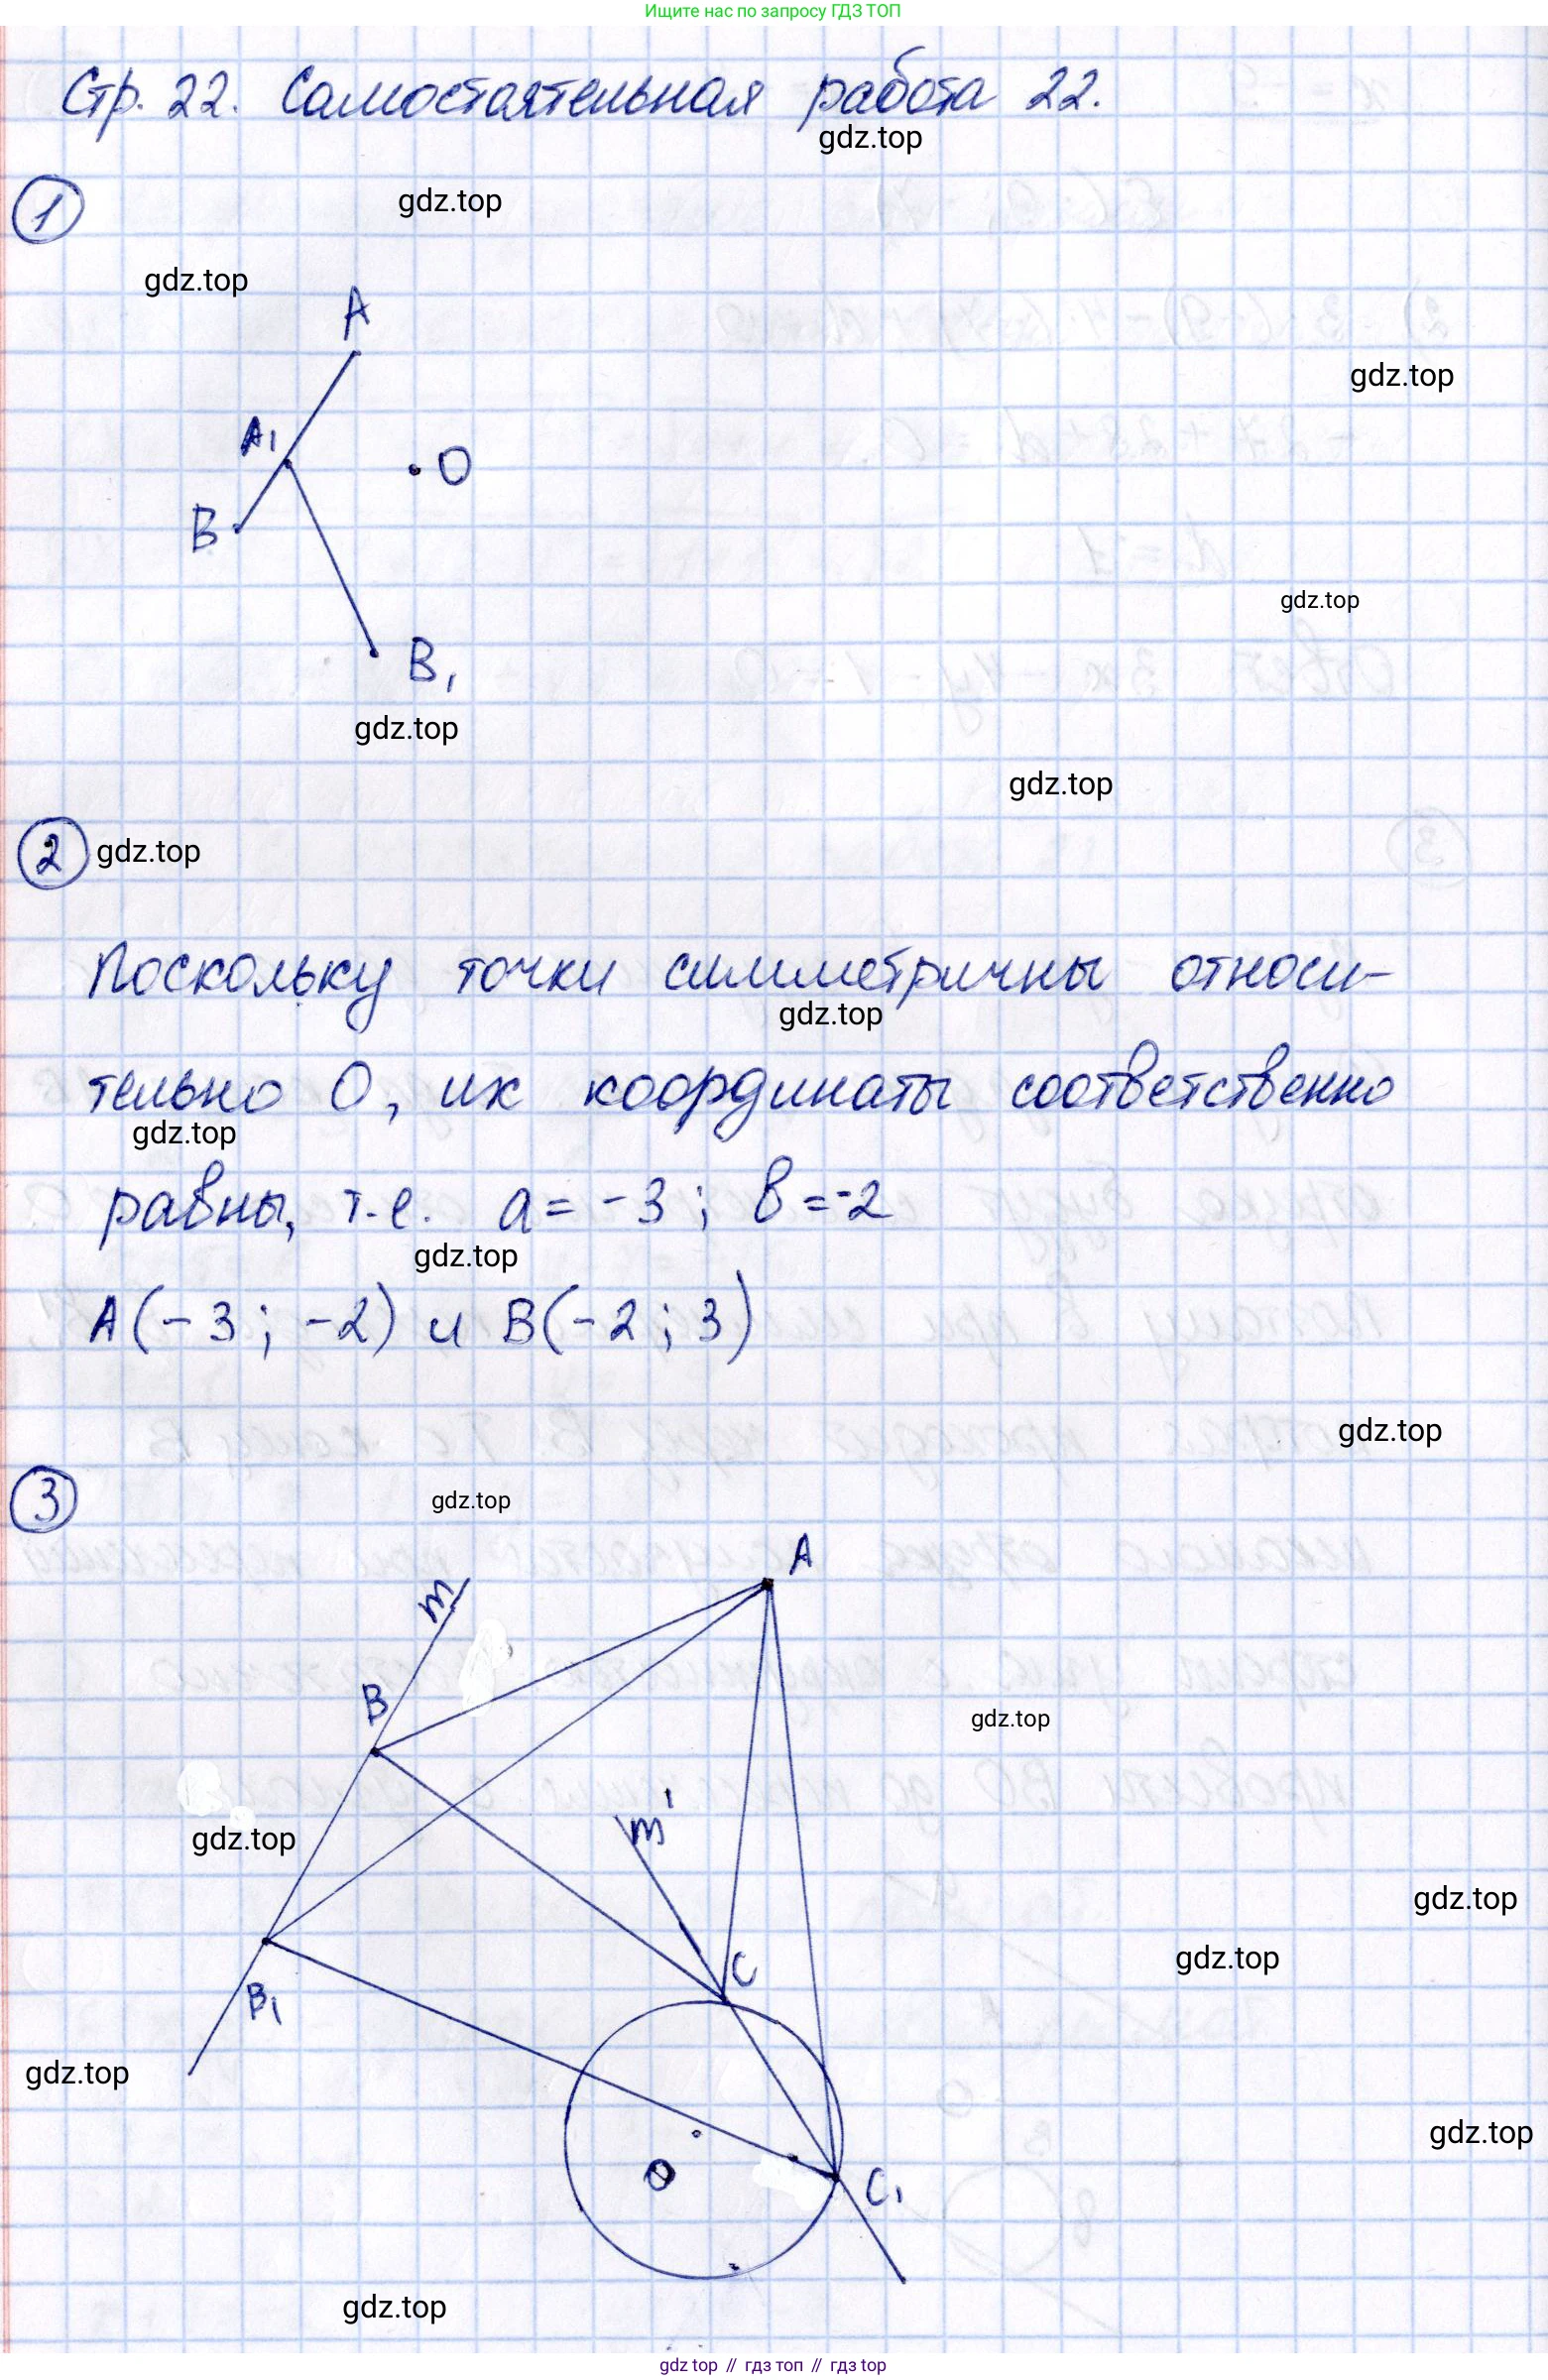 Ищите нас по запросу ГДЗ ТОП
Стр. 22. Самостоятельная работа 22.
gdz.top
1
gdz.top
gdz.top
A
gdz.top
A₁
O
B
gdz.top
B₁
gdz.top
gdz.top
2
gdz.top
Поскольку точки симметричны относи-
gdz.top
тельно О, их координаты соответственно
gdz.top
равны, т.е. a = -3; b = -2
gdz.top
A(-3; -2) и B(-2; 3)
gdz.top
3
gdz.top
A
m
B
gdz.top
m'
gdz.top
gdz.top
C
gdz.top
B₁
gdz.top
gdz.top
O
C₁
gdz.top
gdz top // гдз топ // гдз top